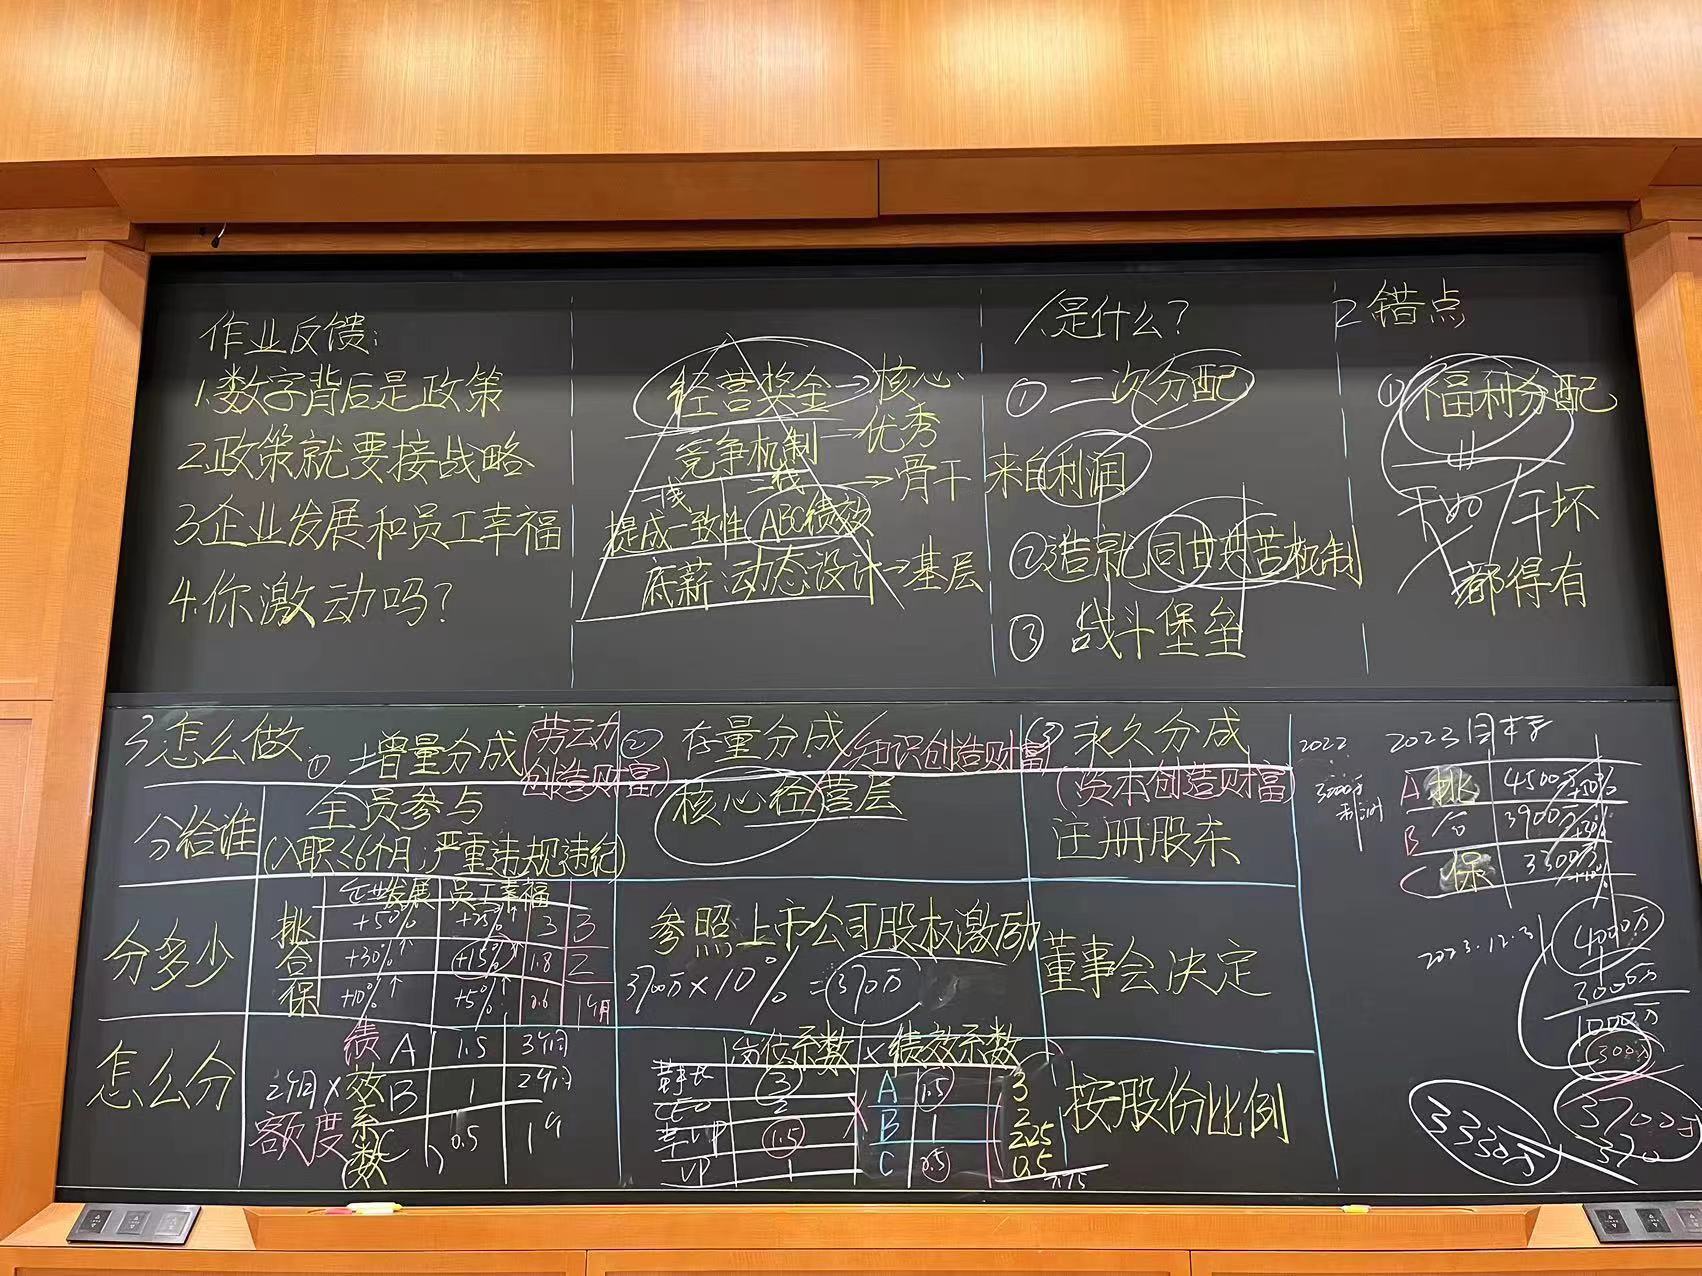 作业反馈:
1.数字背后是政策
2.政策就要接战略
3.企业发展和员工幸福
4.你激动吗?
经营奖金→核心
竞争机制—优秀
一线 二线→骨干
提成一致性 ABC绩效
底薪:动态设计→基层
1.是什么?
① 二次分配
来自利润
②造就同甘共苦机制
③ 战斗堡垒
2 错点
①福利分配
干好/干坏
都得有
3怎么做
① 增量分成(劳动力
创造财富)
② 存量分成(知识创造财富
③ 永久分成
(资本创造财富)
分给谁
全员参与
(入职<6个月;严重违规违纪)
核心经营层
注册股东
分多少
企业发展 员工幸福
挑 +50%↑ +25%↑ 3 3
合 +30%↑ +15% 1.8 2
保 +10%↑ +5% 0.6 1个月
参照上市公司股权激励
3700万×10%=370万
董事会决定
怎么分
2个月×
额度
绩效系数
A 1.5 3个月
B 1 2个月
C 0.5 1个
岗位系数×绩效系数
董事长 3
CEO 2
VP 1.5
VP 1
× A 1.5
B 1
C 0.5
3
2
2.25
0.5
按股份比例
2022
3000万
利润
2023目标
A 挑 4500万 +50%
B 合 3900万 +30%
C 保 3300万 +10%
2023.12.31
4000万
3000万
1000万
300万
3700万
370
3330万